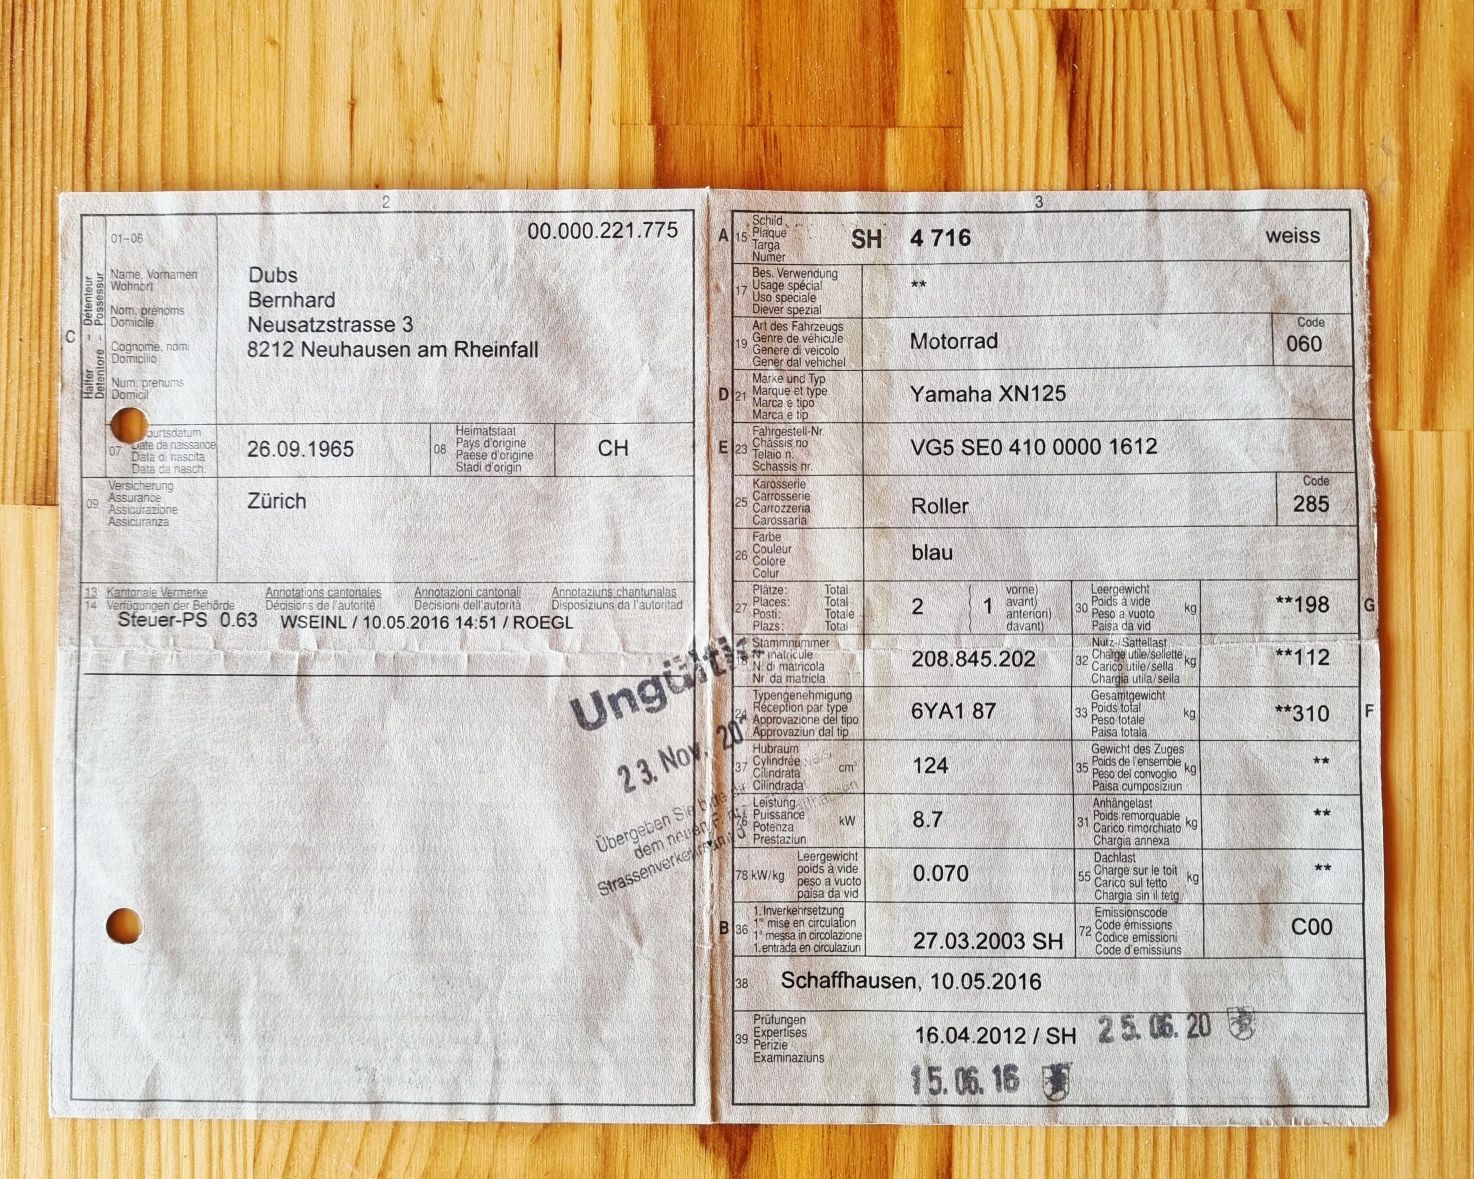 2
01-06
00.000.221.775
C
Halter - Détenteur
Detentore - Possessur
Name, Vornamen
Wohnort
Nom, prénoms
Domicile
Cognome, nomi
Domicilio
Num, prenums
Domicil
Dubs
Bernhard
Neusatzstrasse 3
8212 Neuhausen am Rheinfall
07
Date de naissance
Data di nascita
Data da nasch.
26.09.1965
08
Heimatstaat
Pays d'origine
Paese d'origine
Stadi d'origin
CH
09
Versicherung
Assurance
Assicurazione
Assicuranza
Zürich
13 Kantonale Vermerke Annotations cantonales Annotazioni cantonali Annotaziuns chantunalas
14 Verfügungen der Behörde Décisions de l'autorité Decisioni dell'autorità Disposiziuns da l'autoritad
Steuer-PS 0.63 WSEINL / 10.05.2016 14:51 / ROEGL
Ungültig
23. Nov. 20
Übergeben Sie bitte
dem neuen
3
A 15
Schild
Plaque
Targa
Numer
SH 4 716 weiss
17
Bes. Verwendung
Usage spécial
Uso speciale
Diever spezial
**
19
Art des Fahrzeugs
Genre de véhicule
Genere di veicolo
Gener dal vehichel
Motorrad
Code
060
D 21
Marke und Typ
Marque et type
Marca e tipo
Marca e tip
Yamaha XN125
E 23
Fahrgestell-Nr.
Châssis no
Telaio n.
Schassis nr.
VG5 SE0 410 0000 1612
25
Karosserie
Carrosserie
Carrozzeria
Carossaria
Roller
Code
285
26
Farbe
Couleur
Colore
Colur
blau
27
Plätze: Total
Places: Total
Posti: Totale
Plazs: Total
2 ( 1
vorne)
avant)
anteriori)
davant)
30
Leergewicht
Poids à vide
Peso a vuoto
Paisa da vid
kg
**198
G
Stammnummer
N° matricule
N. di matricola
Nr. da matricla
208.845.202
32
Nutz-/Sattellast
Charge utile/sellette
Carico utile/sella
Chargia utila/sella
kg
**112
24
Typengenehmigung
Réception par type
Approvazione del tipo
Approvaziun dal tip
6YA1 87
33
Gesamtgewicht
Poids total
Peso totale
Paisa totala
kg
**310
F
37
Hubraum
Cylindrée
Cilindrata
Cilindrada
cm³
124
35
Gewicht des Zuges
Poids de l'ensemble
Peso del convoglio
Paisa cumposiziun
kg
**
76
Leistung
Puissance
Potenza
Prestaziun
kW
8.7
31
Anhängelast
Poids remorquable
Carico rimorchiato
Chargia annexa
kg
**
78 kW/kg
Leergewicht
poids à vide
peso a vuoto
paisa da vid
0.070
55
Dachlast
Charge sur le toit
Carico sul tetto
Chargia sin il tetg
kg
**
B 36
1. Inverkehrsetzung
1re mise en circulation
1a messa in circolazione
1. entrada en circulaziun
27.03.2003 SH
72
Emissionscode
Code émissions
Codice emissioni
Code d'emissiuns
C00
38
Schaffhausen, 10.05.2016
39
Prüfungen
Expertises
Perizie
Examinaziuns
16.04.2012 / SH 25.06.20
15.06.16